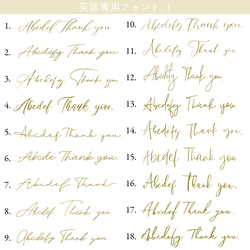 英語専用フォント.1
1. Abcdef Thank you
2. Abcdefg Thank you
3. Abcdefg Thank you
4. Abcdef Thank you.
5. Abcdef Thank you
6. Abcde Thank you
7. Abcdef Thank
8. Abcdef Thank you
9. Abcdefg Thank you
10. Abcdefg Thank you.
11. Abcdefg Thank you
12. Abcdefg Thank you
13. Abcdefg Thank you
14. Abcdefg Thank you
15. Abcdef Thank you
16. Abcdef Thank you.
17. Abcdefg Thank you
18. Abcdefg Thank you